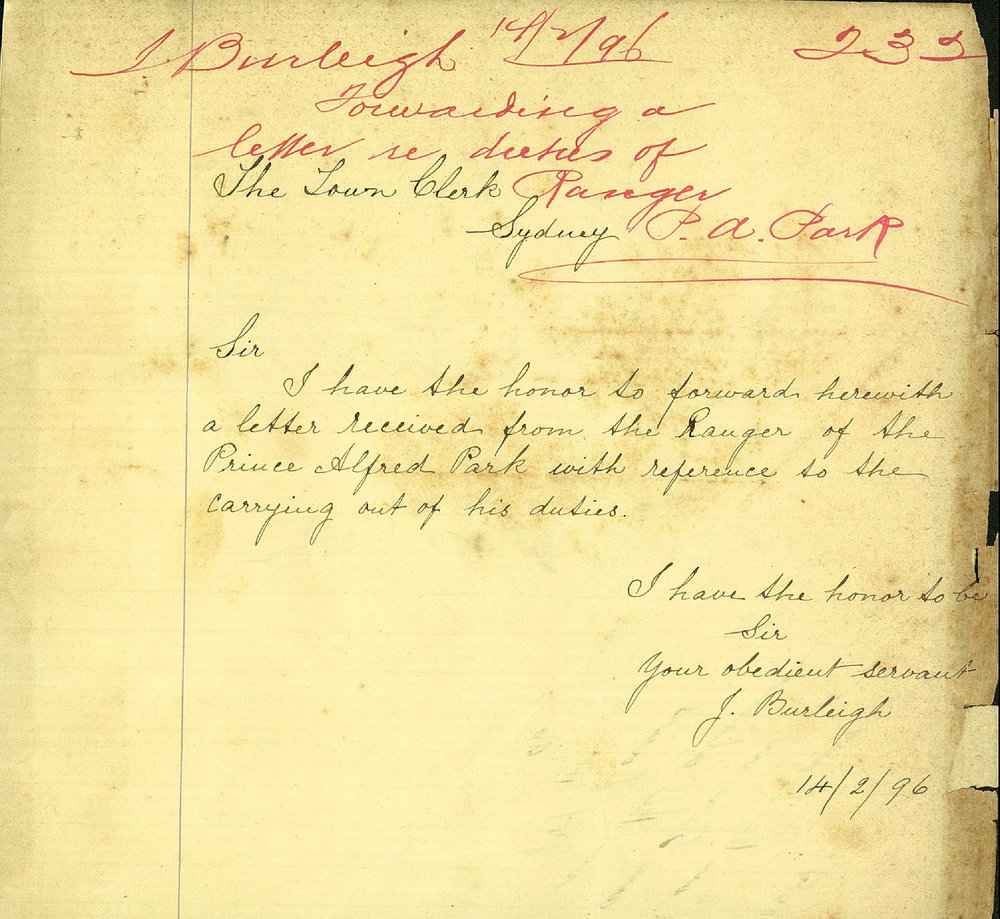 J Burleigh 14/2/96 233
Forwarding a
letter re duties of
Ranger
P. A. Park
The Town Clerk
Sydney
Sir
I have the honor to forward herewith
a letter received from the Ranger of the
Prince Alfred Park with reference to the
carrying out of his duties.
I have the honor to be
Sir
Your obedient servant
J. Burleigh
14/2/96